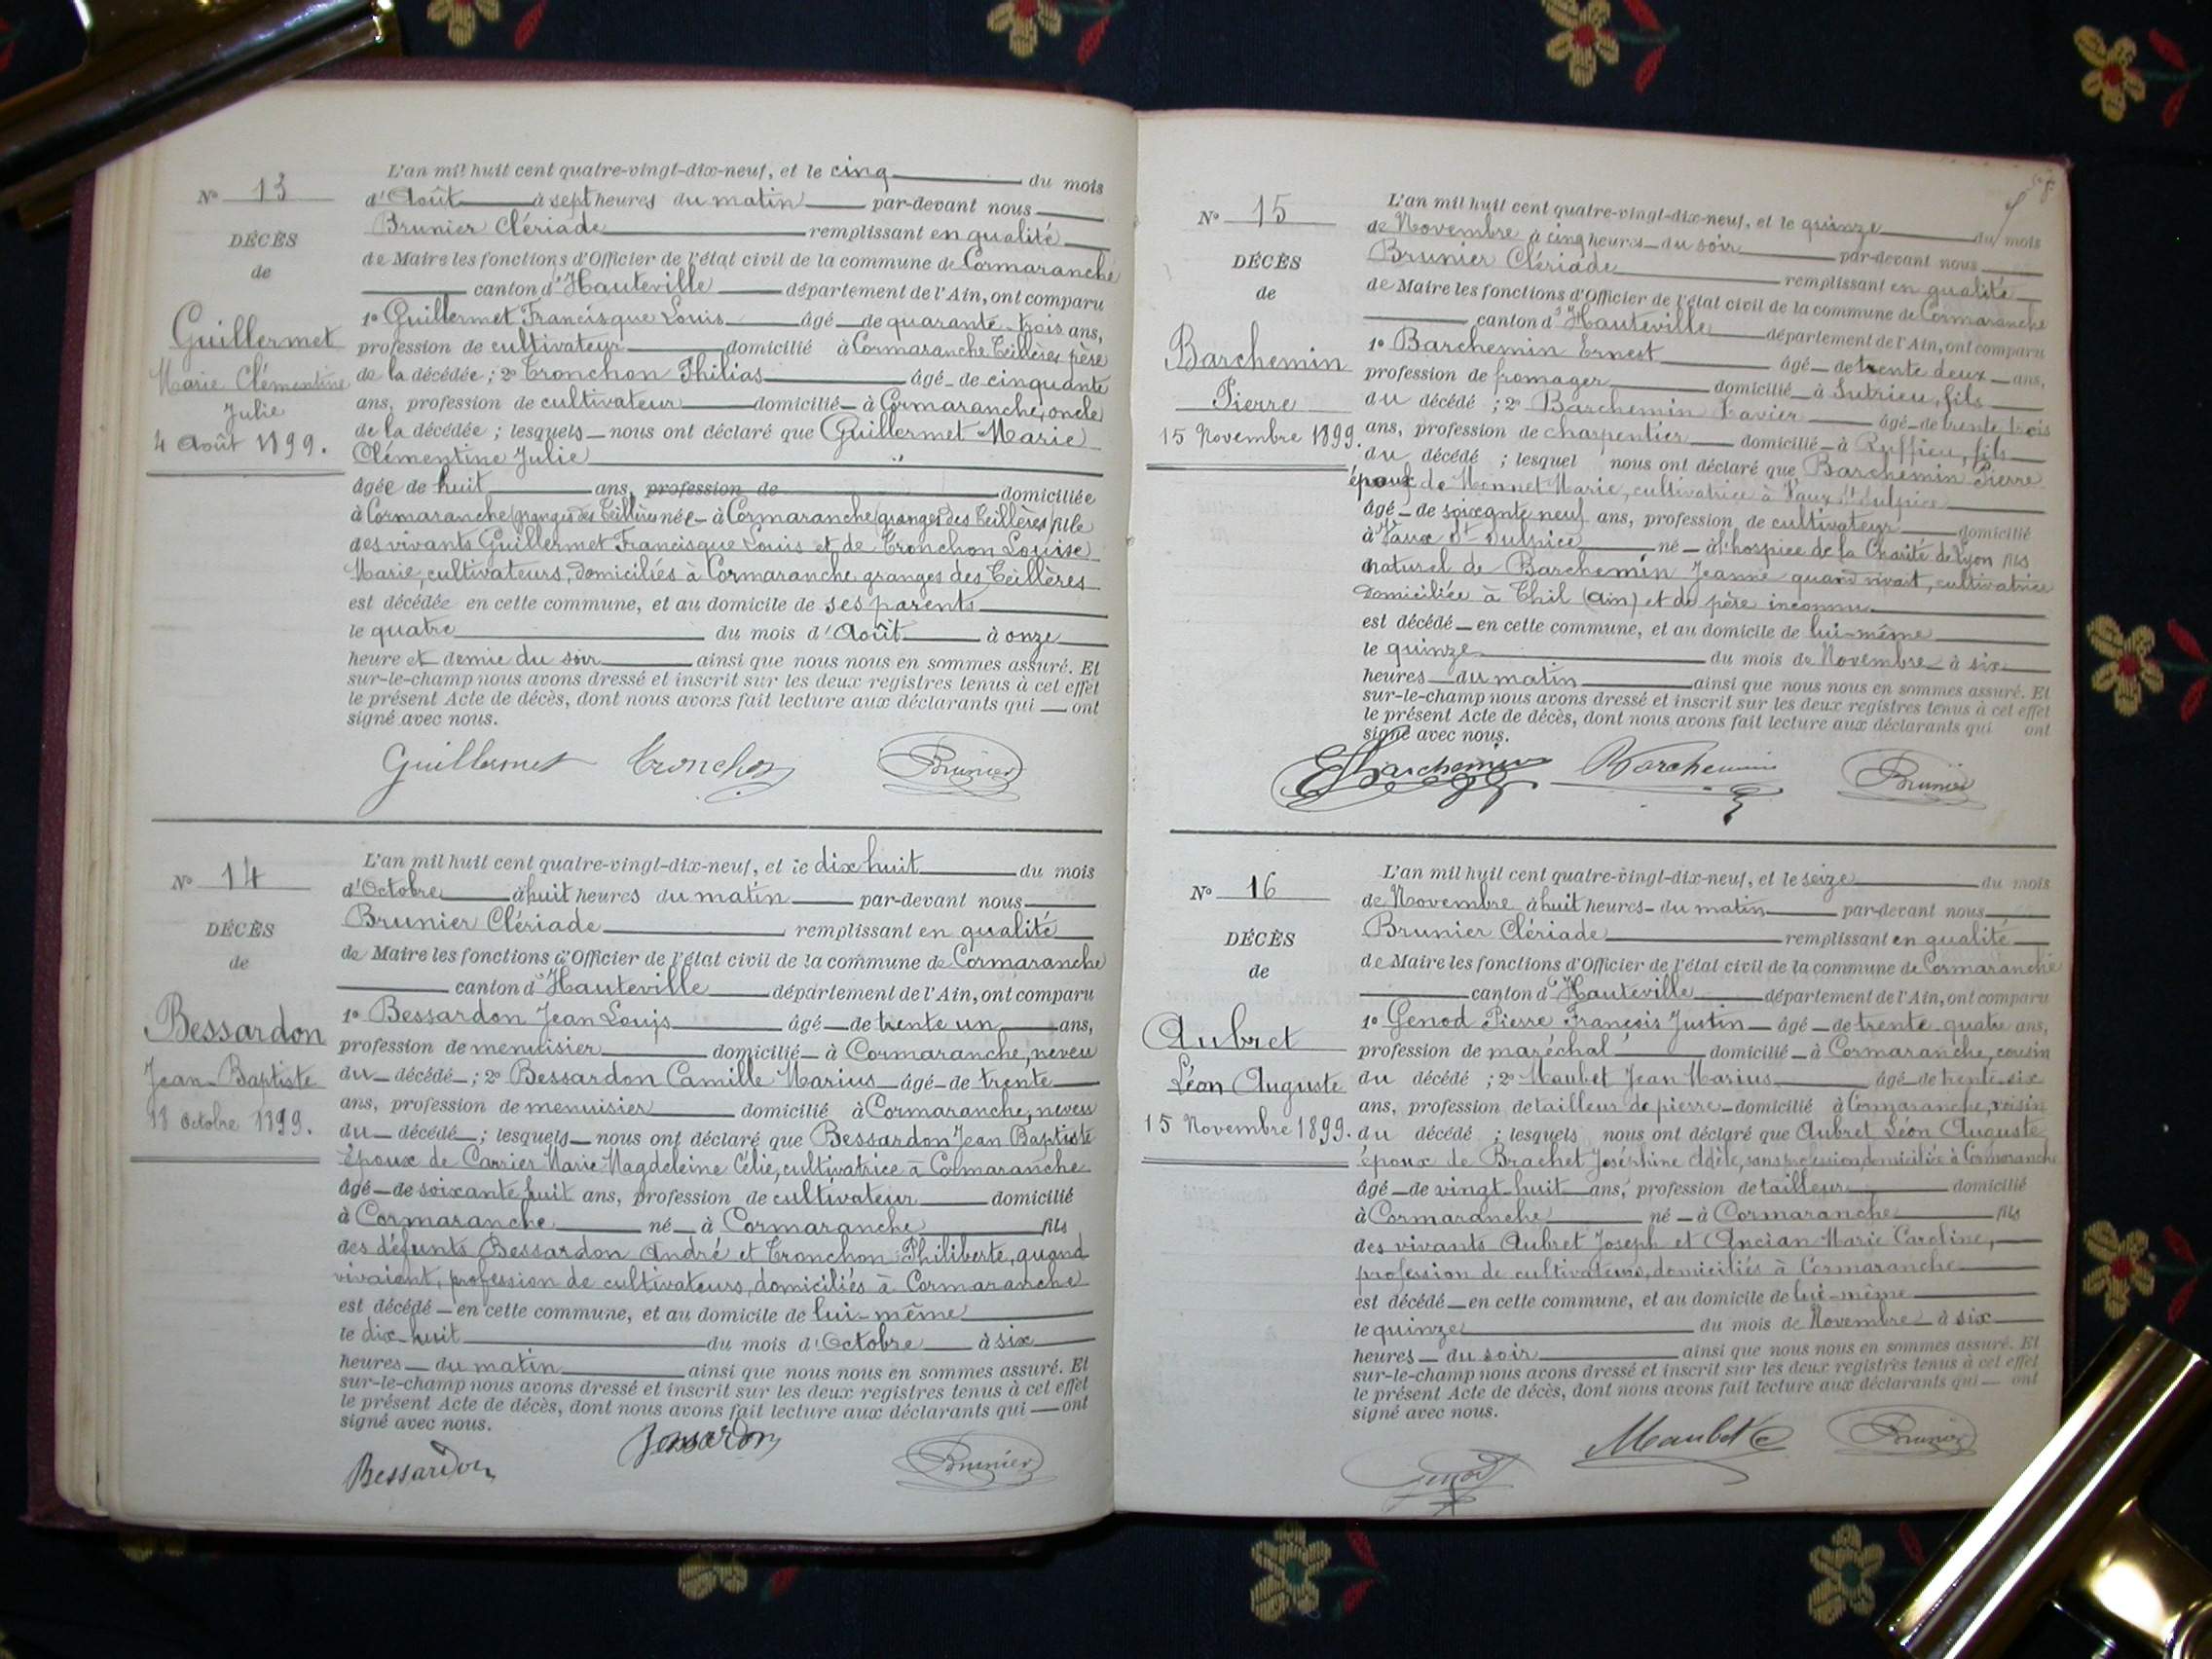 N° 13
DÉCÈS
de
Guillermet
Marie Clémentine
Julie
4 Août 1899.
L'an mil huit cent quatre-vingt-dix-neuf, et le cinq du mois
d'Août à sept heures du matin par-devant nous
Brunier Clériade remplissant en qualité
de Maire les fonctions d'Officier de l'état civil de la commune de Cormaranche
canton d'Hauteville département de l'Ain, ont comparu
1° Guillermet Francisque Louis âgé de quarante-trois ans,
profession de cultivateur domicilié à Cormaranche Teillères père
de la décédée ; 2° Tronchon Philias âgé de cinquante
ans, profession de cultivateur domicilié à Cormaranche, oncle
de la décédée ; lesquels nous ont déclaré que Guillermet Marie
Clémentine Julie
âgée de huit ans, profession de domiciliée
à Cormaranche (granges des Teillères née à Cormaranche (granges des Teillères) fille
des vivants Guillermet Francisque Louis et de Tronchon Louise
Marie, cultivateurs, domiciliés à Cormaranche granges des Teillères
est décédée en cette commune, et au domicile de ses parents
le quatre du mois d'Août à onze
heure et demie du soir ainsi que nous nous en sommes assuré. Et
sur-le-champ nous avons dressé et inscrit sur les deux registres tenus à cet effet
le présent Acte de décès, dont nous avons fait lecture aux déclarants qui ont
signé avec nous.
Guillermet Tronchon Brunier
N° 14
DÉCÈS
de
Bessardon
Jean-Baptiste
18 Octobre 1899.
L'an mil huit cent quatre-vingt-dix-neuf, et le dix huit du mois
d'Octobre à huit heures du matin par-devant nous
Brunier Clériade remplissant en qualité
de Maire les fonctions d'Officier de l'état civil de la commune de Cormaranche
canton d'Hauteville département de l'Ain, ont comparu
1° Bessardon Jean Louis âgé de trente un ans,
profession de menuisier domicilié à Cormaranche, neveu
du décédé ; 2° Bessardon Camille Marius âgé de trente
ans, profession de menuisier domicilié à Cormaranche, neveu
du décédé ; lesquels nous ont déclaré que Bessardon Jean Baptiste
Époux de Carrier Marie Magdeleine Célie, cultivatrice à Cormaranche
âgé de soixante huit ans, profession de cultivateur domicilié
à Cormaranche né à Cormaranche fils
des défunts Bessardon André et Tronchon Philiberte, quand
vivaient, profession de cultivateurs, domiciliés à Cormaranche
est décédé en cette commune, et au domicile de lui-même
le dix-huit du mois d'Octobre à six
heures du matin ainsi que nous nous en sommes assuré. Et
sur-le-champ nous avons dressé et inscrit sur les deux registres tenus à cet effet
le présent Acte de décès, dont nous avons fait lecture aux déclarants qui ont
signé avec nous.
Bessardon Bessardon Brunier
N° 15
DÉCÈS
de
Barchemin
Pierre
15 Novembre 1899.
L'an mil huit cent quatre-vingt-dix-neuf, et le quinze du mois
de Novembre à cinq heures du soir par-devant nous
Brunier Clériade remplissant en qualité
de Maire les fonctions d'Officier de l'état civil de la commune de Cormaranche
canton d'Hauteville département de l'Ain, ont comparu
1° Barchemin Ernest âgé de trente deux ans,
profession de fromager domicilié à Sutrieu, fils
du décédé ; 2° Barchemin Xavier âgé de trente trois
ans, profession de charpentier domicilié à Ruffieu, fils
du décédé ; lesquel nous ont déclaré que Barchemin Pierre
époux de Monnet Marie, cultivatrice à Vaux St Sulpice
âgé de soixante neuf ans, profession de cultivateur domicilié
à Vaux St Sulpice né à l'hospice de la Charité de Lyon fils
naturel de Barchemin Jeanne quand vivait, cultivatrice
domiciliée à Thil (Ain) et de père inconnu
est décédé en cette commune, et au domicile de lui-même
le quinze du mois de Novembre à six
heures du matin ainsi que nous nous en sommes assuré. Et
sur-le-champ nous avons dressé et inscrit sur les deux registres tenus à cet effet
le présent Acte de décès, dont nous avons fait lecture aux déclarants qui ont
signé avec nous.
EBarchemin Barchemin Brunier
N° 16
DÉCÈS
de
Aubret
Léon Auguste
15 Novembre 1899.
L'an mil huit cent quatre-vingt-dix-neuf, et le seize du mois
de Novembre à huit heures du matin par-devant nous
Brunier Clériade remplissant en qualité
de Maire les fonctions d'Officier de l'état civil de la commune de Cormaranche
canton d'Hauteville département de l'Ain, ont comparu
1° Genod Pierre François Justin âgé de trente-quatre ans,
profession de maréchal domicilié à Cormaranche, cousin
du décédé ; 2° Maubet Jean Marius âgé de trente-six
ans, profession de tailleur de pierre domicilié à Cormaranche, voisin
du décédé ; lesquels nous ont déclaré que Aubret Léon Auguste
époux de Brachet Joséphine Adèle, sans profession, domiciliée à Cormaranche
âgé de vingt-huit ans, profession de tailleur domicilié
à Cormaranche né à Cormaranche fils
des vivants Aubret Joseph et Ancian Marie Caroline,
profession de cultivateurs, domiciliés à Cormaranche
est décédé en cette commune, et au domicile de lui-même
le quinze du mois de Novembre à six
heures du soir ainsi que nous nous en sommes assuré. Et
sur-le-champ nous avons dressé et inscrit sur les deux registres tenus à cet effet
le présent Acte de décès, dont nous avons fait lecture aux déclarants qui ont
signé avec nous.
Genod Maubet Brunier